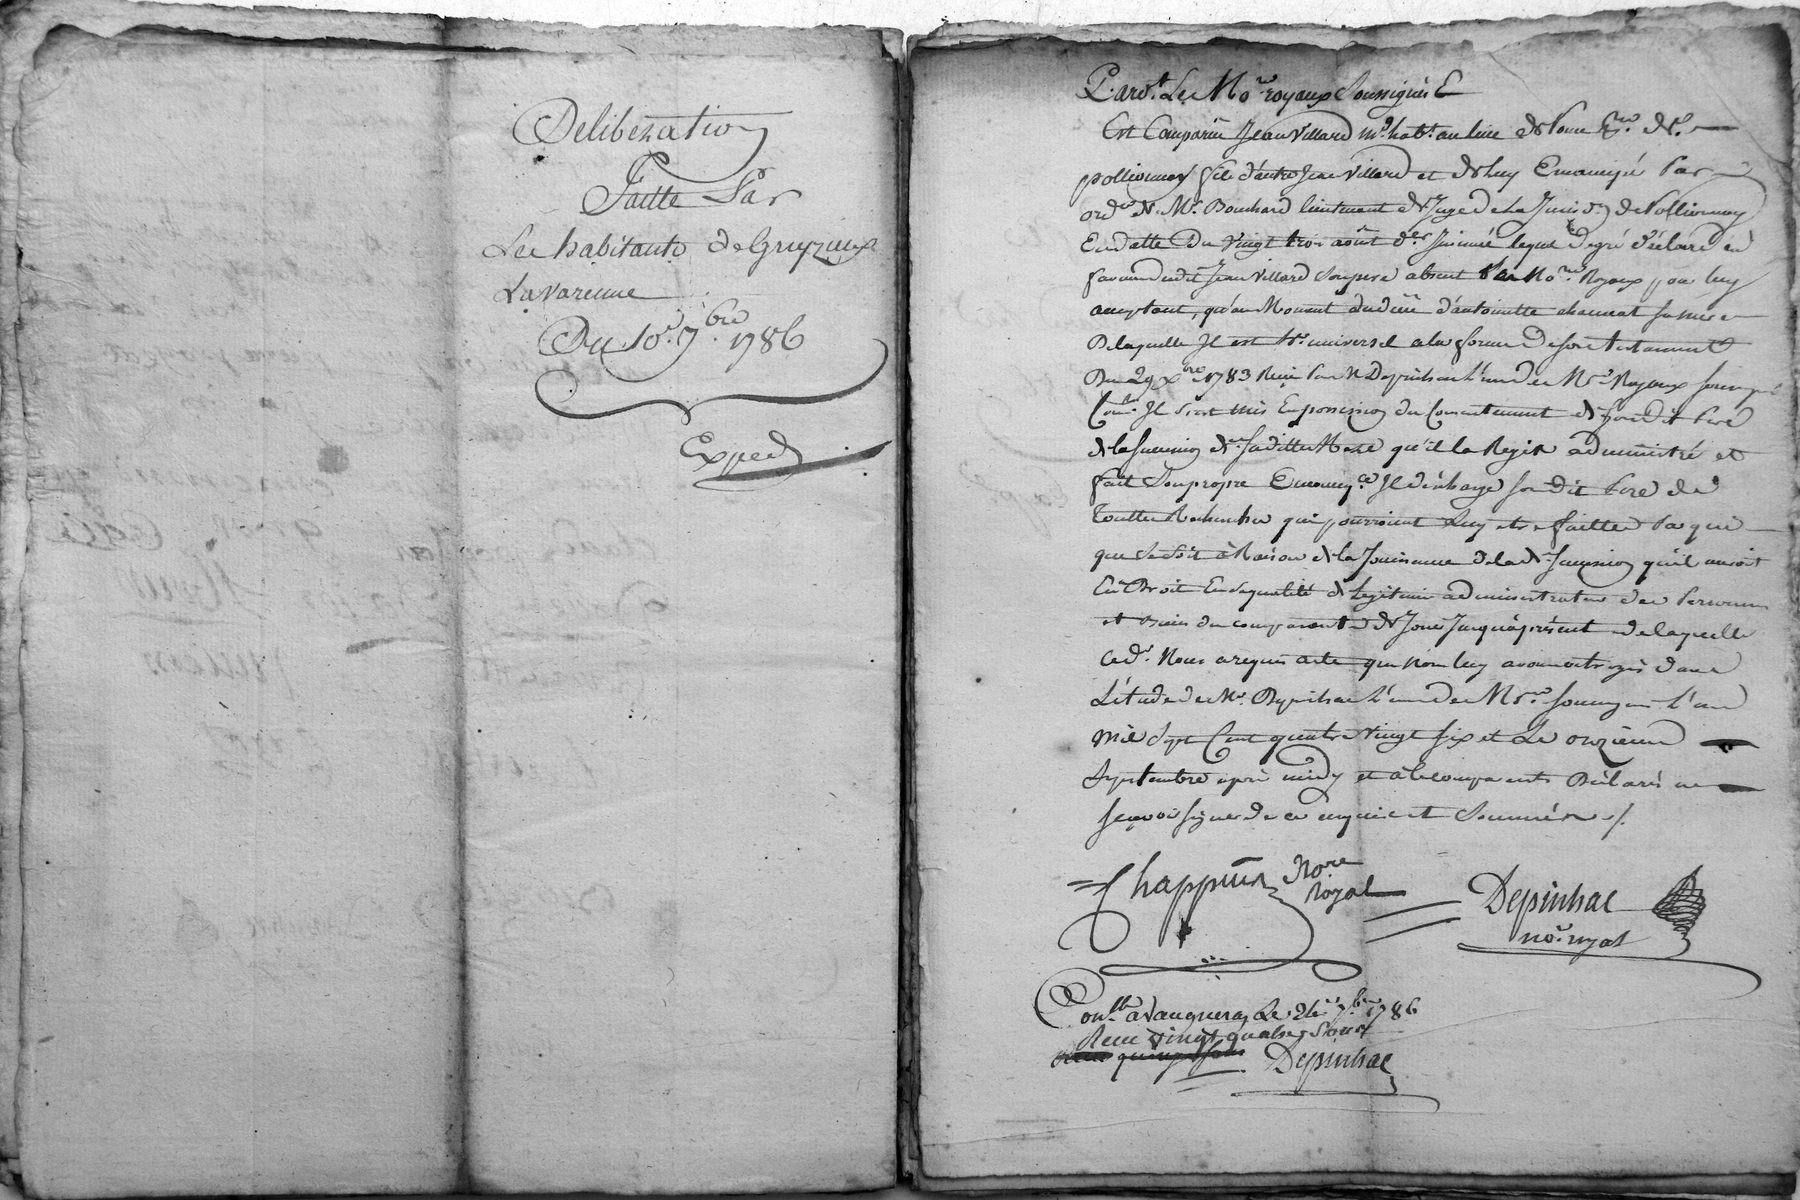 Deliberation
Faitte Par
Les habitants de Gruyzieux
Lavarenne
Du 10e 7bre 1786
Exped
Pardt Les Nores royaux Soussignés E
Est Comparû Jean Villard md habt au lieu de
pollionnay fils d'autre Jean Villard et de luy Emancipé Par
ordce de Mr Bouchard lieutenant de Juge de La Jurisdon de Pollionnay
En datte du vingt trois août der Jnsinué lequel de gré déclare en
faveur dudit Jean Villard Son pere absent Les Nores Royaux pour luy
acceptant, qu'au Moment du décès d'antoinette sa mere
De laquelle Jl est her universel a la forme de son testament
Du 29 Xbre 1783 Reçu Par Depinhac L'un des Nres Royaux
Contlé Jl s'est mis En possession du Consentement de son dit Pere
de la succession de sa ditte Mere qu'il la Regit administré et
fait Son propre Jl décharge son dit Pere de
touttes Recherches qui pourroient Luy etre faittes Par qui
que Ce Soit à Raison de la Jouissance de lade succession qu'il auroit
Eû Droit En sa qualité de legitime administrateur des Personnes
et biens du comparant de Jouir Jusqu'à présent de laquelle
Nous a requis acte que nous luy avons octroyés dans
L'étude de Me Depinhac L'un des Nres soussignés L'an
mil Sept Cent quatre Vingt six et Le onzieme
Septembre après midy et à le comparant Déclaré ne
sçavoir signer de ce enquis et Sommé ./.
Chappuis Nore
Royal
Depinhac
nore royal
Contllé a Vaugneray Le 24e 7bre 1786
Reçu vingt quatre Sous
quinze sous Depinhac